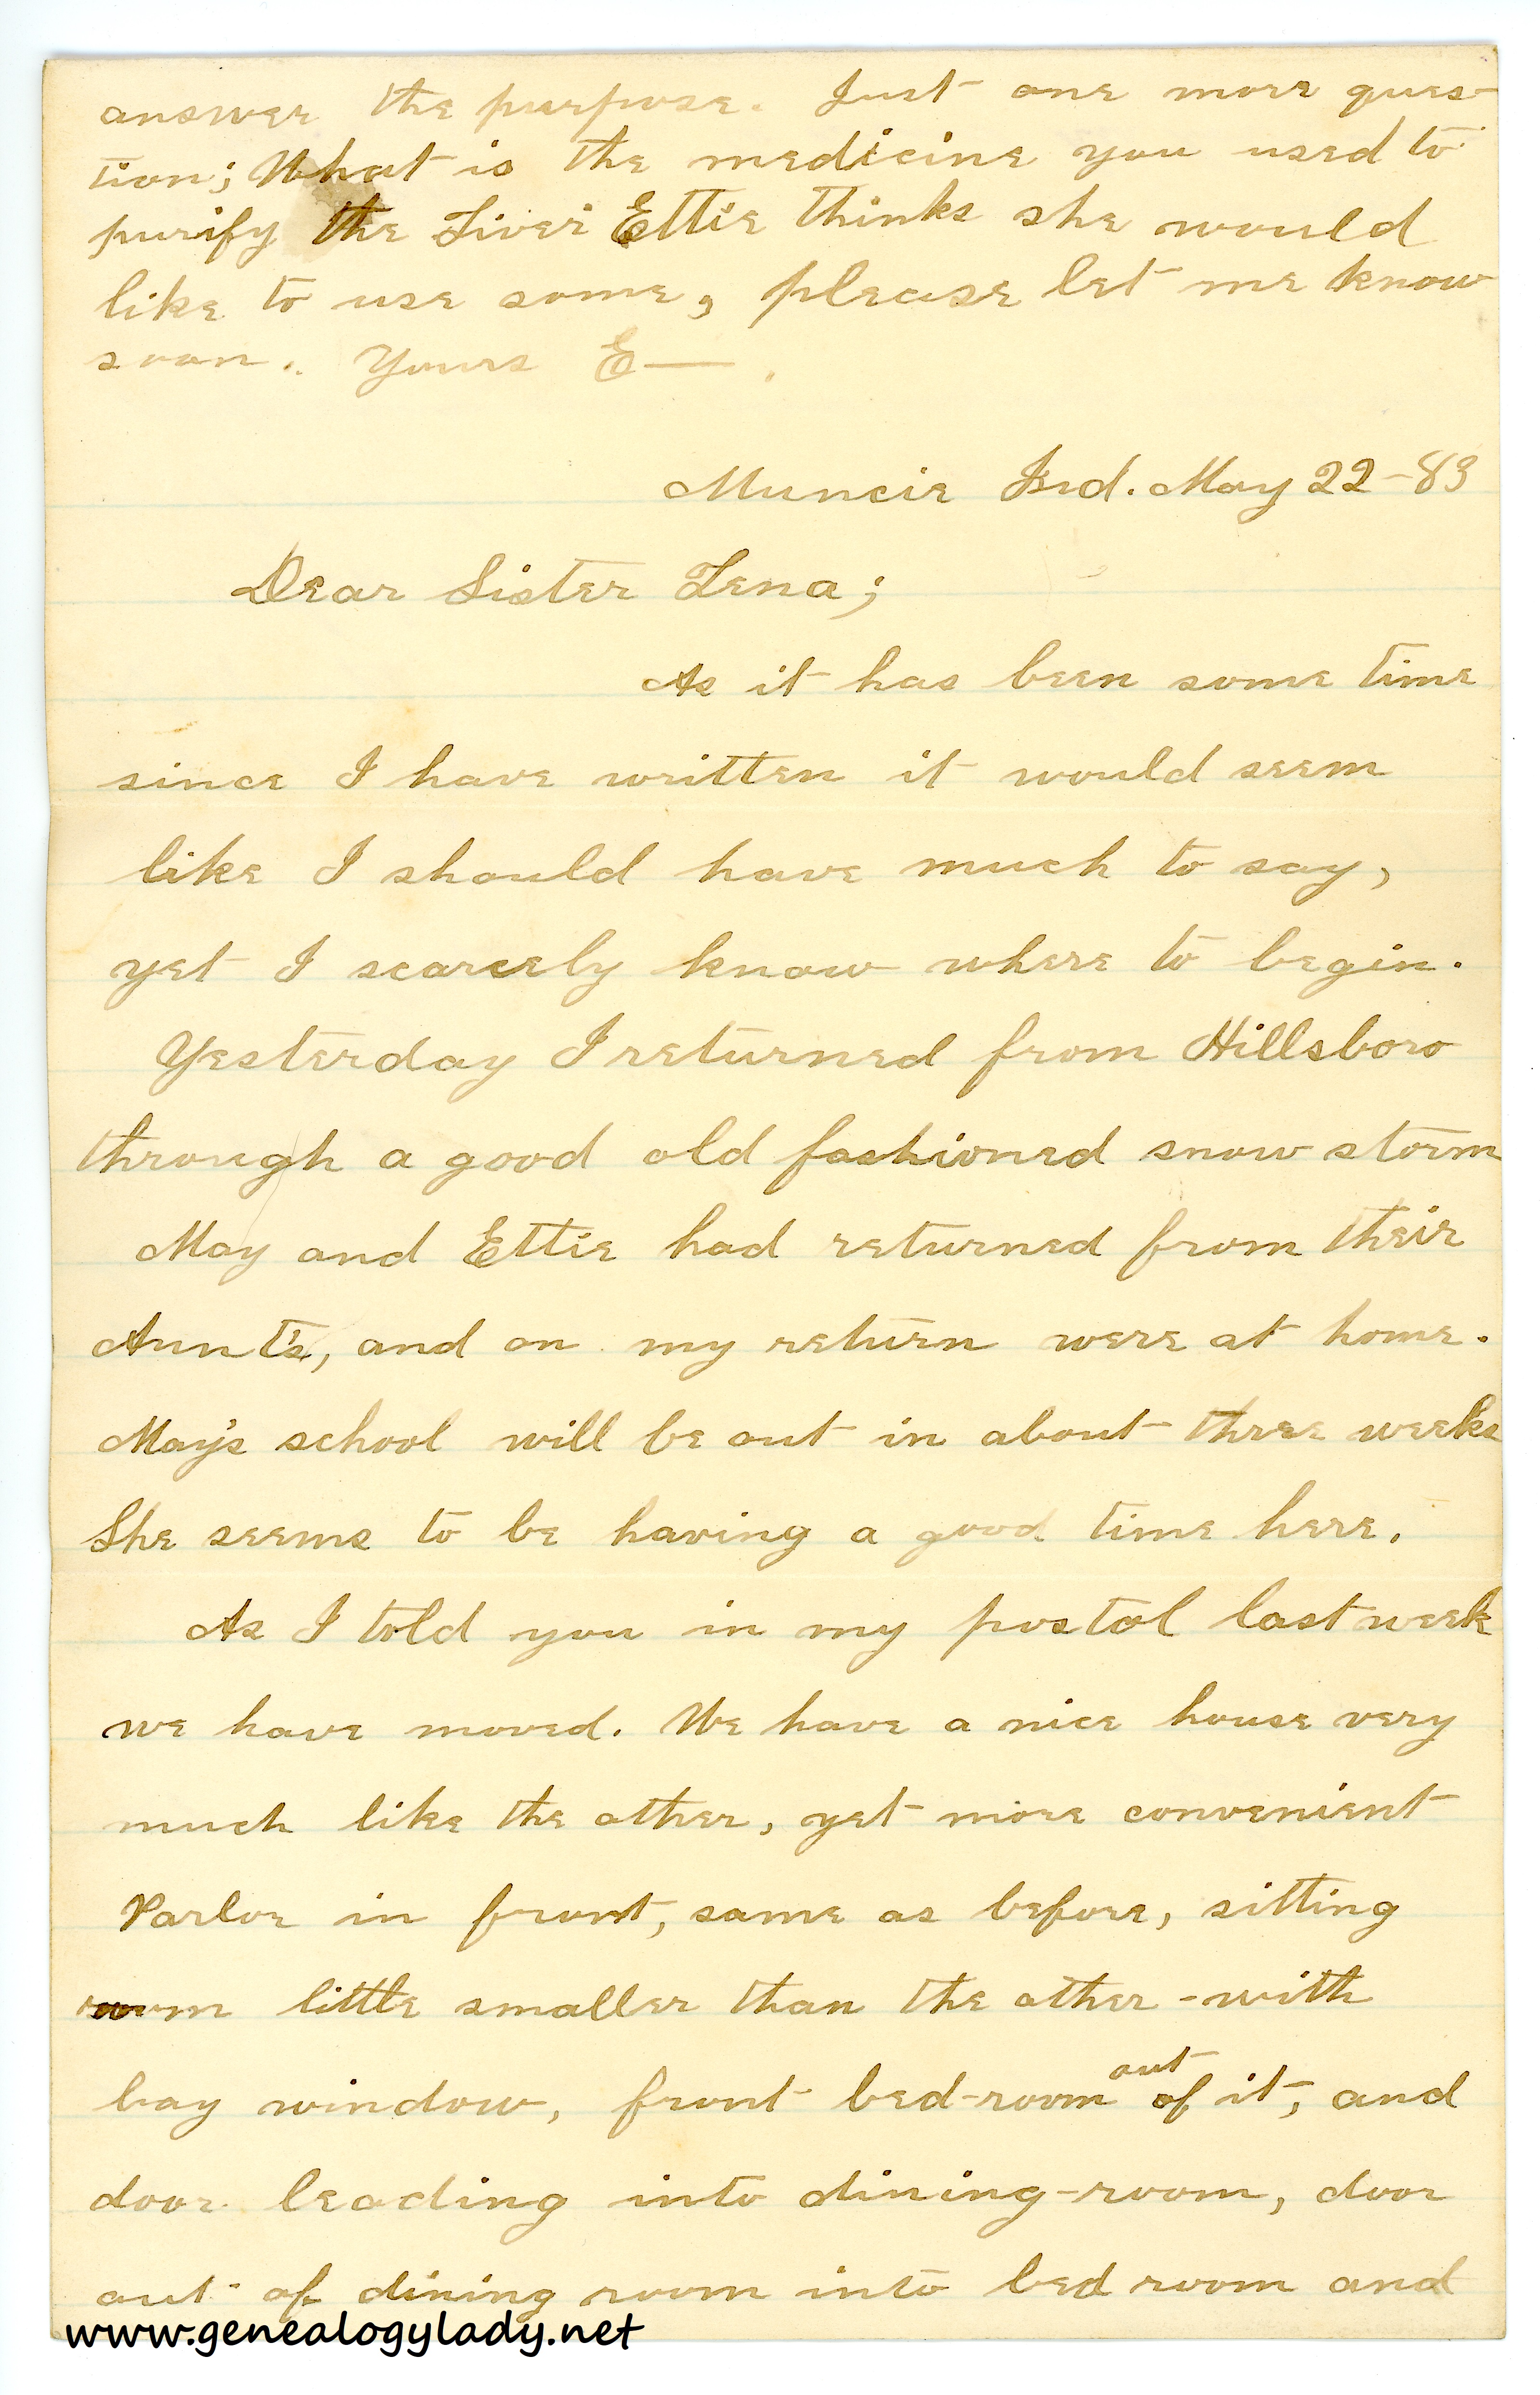 answer the purpose. Just one more ques-
tion; What is the medicine you used to
purify the Liver Ettie thinks she would
like to use some, please let me know
soon. Yours E—.
Muncie Ind. May 22-83
Dear Sister Lena;
As it has been some time
since I have written it would seem
like I should have much to say,
yet I scarcely know where to begin.
Yesterday I returned from Hillsboro
through a good old fashioned snow storm
May and Ettie had returned from their
Aunt's, and on my return were at home.
May's school will be out in about three weeks
She seems to be having a good time here.
As I told you in my postal last week
we have moved. We have a nice house very
much like the other, yet more convenient
Parlor in front, same as before, sitting
room little smaller than the other - with
bay window, front bed-room out of it, and
door leading into dining-room, door
out of dining room into bed room and
www.genealogylady.net